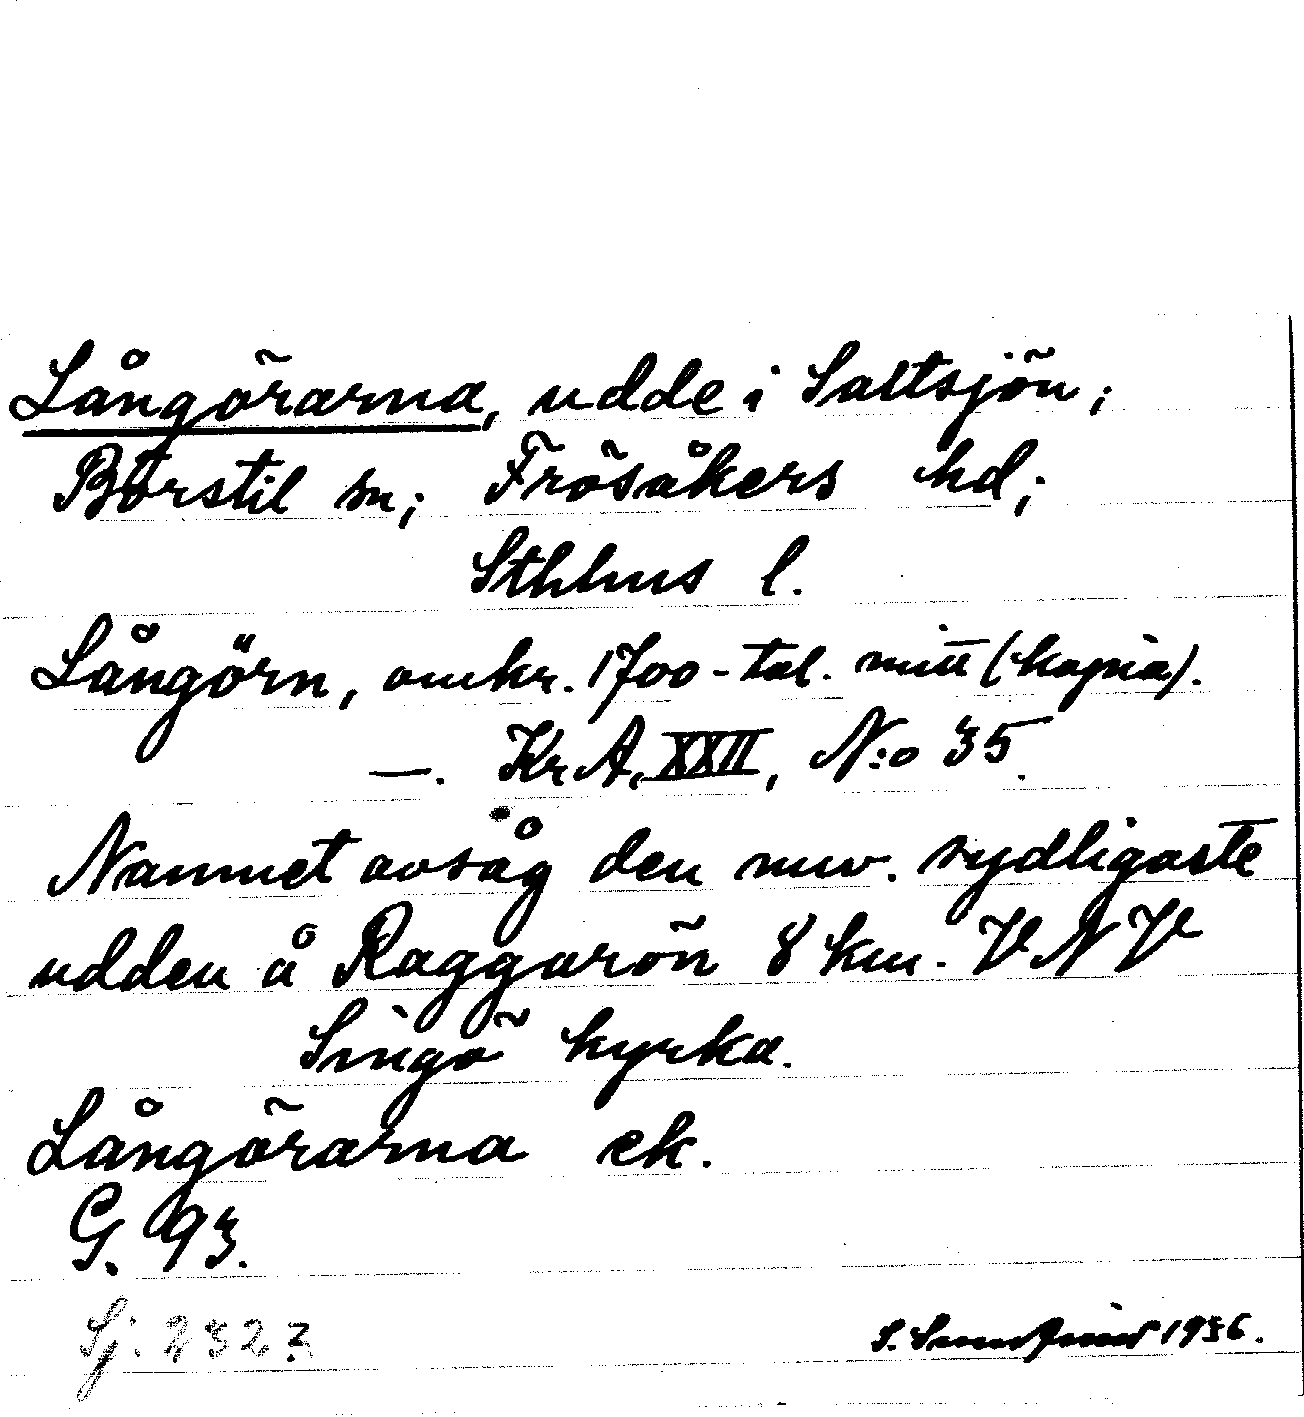 Långörarna, udde i Saltsjön;
Börstil sn; Frösåkers hd;
Sthlms l.
Långörn, omkr. 1700-tal. mitt (kopia).
—. KrA, XXII, N:o 35.
Namnet avsåg den nuv. sydligaste
udden å Raggarön 8 km. VNV
Singö kyrka.
Långörarna ek.
G. 93.
Sj. 232
S. 1936.